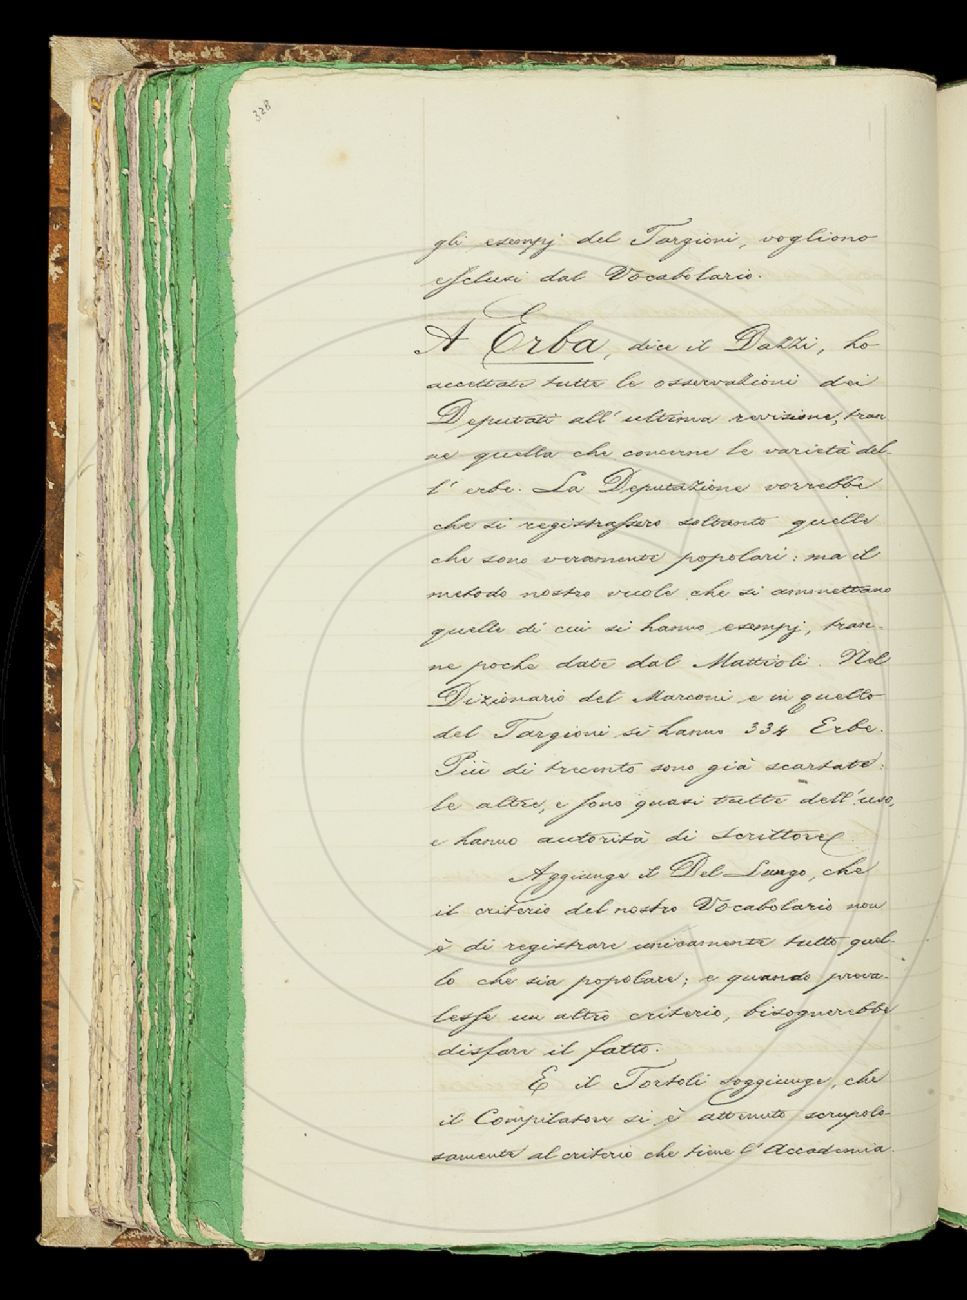 328
gli esempj del Targioni, vogliono
esclusi dal Vocabolario.
A Erba, dice il Dazzi, ho
accettate tutte le osservazioni dei
Deputati all'ultima revisione, tran-
ne quella che concerne le varietà del-
l'erbe. La Deputazione vorrebbe
che si registrassero soltanto quelle
che sono veramente popolari: ma il
metodo nostro vuole che si ammettano
quelle di cui si hanno esempj, tran-
ne poche date dal Mattioli. Nel
Dizionario del Marconi e in quello
del Targioni si hanno 334 Erbe.
Più di trecento sono già scartate:
le altre, e sono quasi tutte dell'uso,
e hanno autorità di Scrittore.
Aggiunge il Del Lungo, che
il criterio del nostro Vocabolario non
è di registrare unicamente tutto quel-
lo che sia popolare; e quando preva-
lesse un altro criterio, bisognerebbe
disfare il fatto.
E il Tortoli soggiunge, che
il Compilatore si è attenuto scrupolo-
samente al criterio che tiene l'Accademia